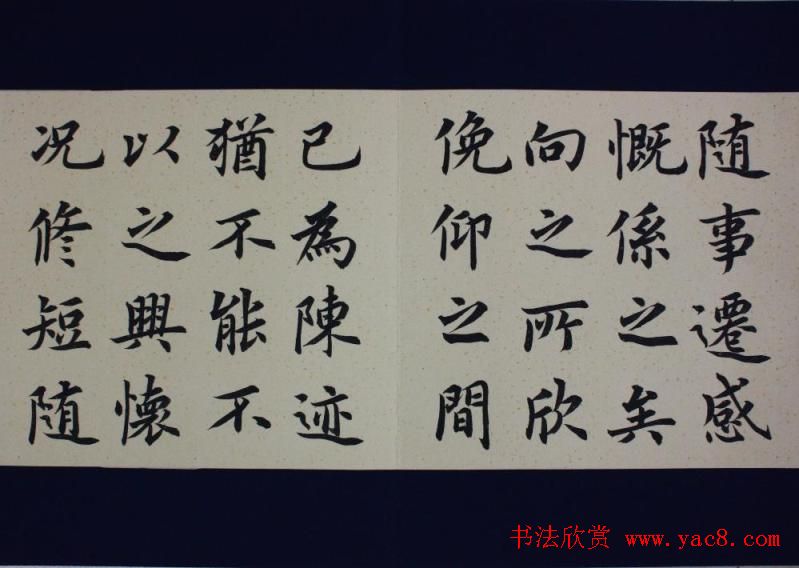 随事遷感
慨係之矣
向之所欣
俛仰之間
已為陳迹
猶不能不
以之興懷
况修短随
书法欣赏 www.yac8.com